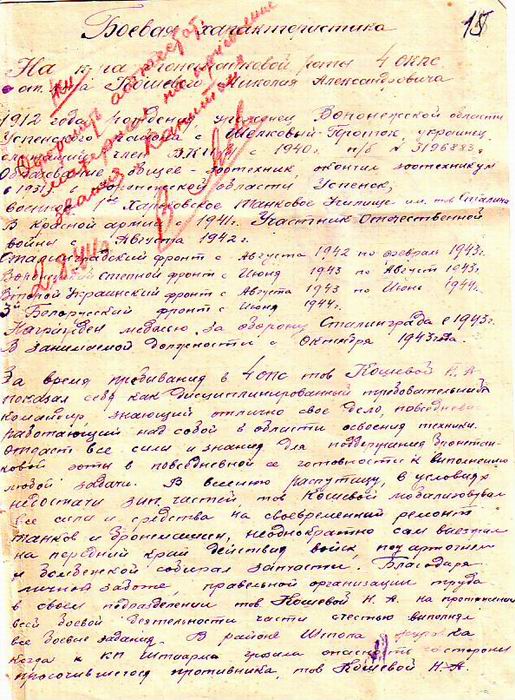 15
Боевая характеристика
На к-ра бронетанковой роты 4 ОПС
ст. Кошевой Николая Александровича
1912 года рождения уроженец Воронежской области
Успенского района с. Шелковый-Проток, украинец
служащий член ВКП(б) с 1940г. п/б №
Образование Общее - зоотехник, окончил зоотехникум
в области Успенок,
военное 1ое Харьковское Танковое Училище им. тов Сталина
В красной армии с 1941г. Участник Отечественной
войны с Августа 1942г.
Сталинградский фронт с Августа 1942 по февраль 1943г.
Степной фронт с Июня 1943 по Август 1943г.
Второй Украинский фронт с Августа 1943 по Июнь 1944г.
3й Белорусский фронт с Июня 1944г.
Награжден медалью, за оборону Сталинграда с 1943г.
В занимаемой должности с Октября 1943 г.
За время пребывания в 4 ОПС тов Кошевой Н. А
показал себя как дисциплинированный требовательный
командир, знающий отлично свое дело, повседневно
работающий над собой в области освоения техники.
отдает все силы и знания для поддержания бронетан-
ковой роты в повседневной ее готовности к выполнению
любой задачи. В весенню распутицу, в условиях
недостачи зип. частей тов Кошевой мобилизовывал
все силы и средства на своевременный ремонт
танков и бронемашин, неоднократно сам выезжал
на передний край действия войск, под артогнем
и бомбежкой собирал запчасти. Благодаря
личной заботе, правельной организации труда
в своем подразделении тов. Кошевой Н. А. на протяжении
всей боевой деятельности части с честью выполнял
все боевые задания. В районе Шпола
когда к КП штаарма грозила опасность со стороны
просочившегося противника, тов Кошевой Н. А.